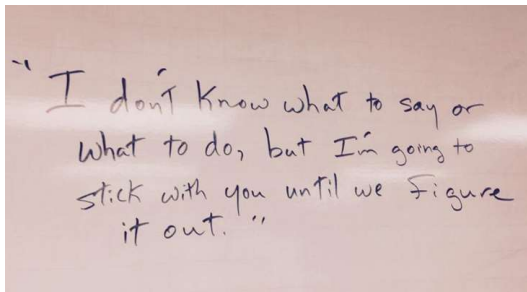 "I don't know what to say or
what to do, but I'm going to
stick with you until we figure
it out."